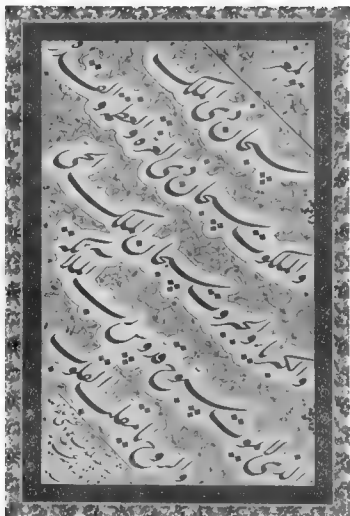 سبحان ذی الملک
والملکوت سبحان ذی العزة والعظمة والقدرة
والکبریاء والجبروت سبحان الملک الحی
الذی لا یموت سبوح قدوس رب الملائکة
والروح یا مقلب القلوب